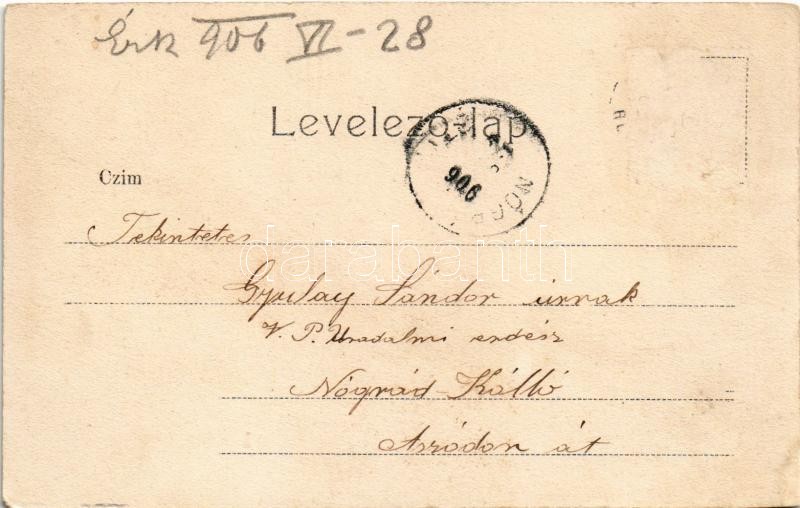 Érk 906 VI-28
Levelező-lap
906
Czim
Tekintetes
darabanth
Gyulay Sándor úrnak
V. P. Uradalmi erdész
Nógrád-Kálló
Aszódon át